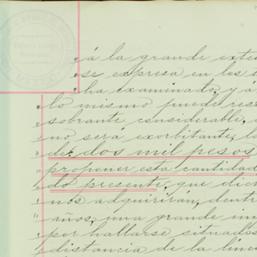 á la grande exten
se expresa en los d
ha examinado, y á
lo mismo puede res
sobrante considerable, á
no será exorbitante, la
de dos mil pesos
proponer esta cantidad
do presente, que dich
nos adquirirán, dentro
años, una grande im
por hallarse situados
distancia de la líne